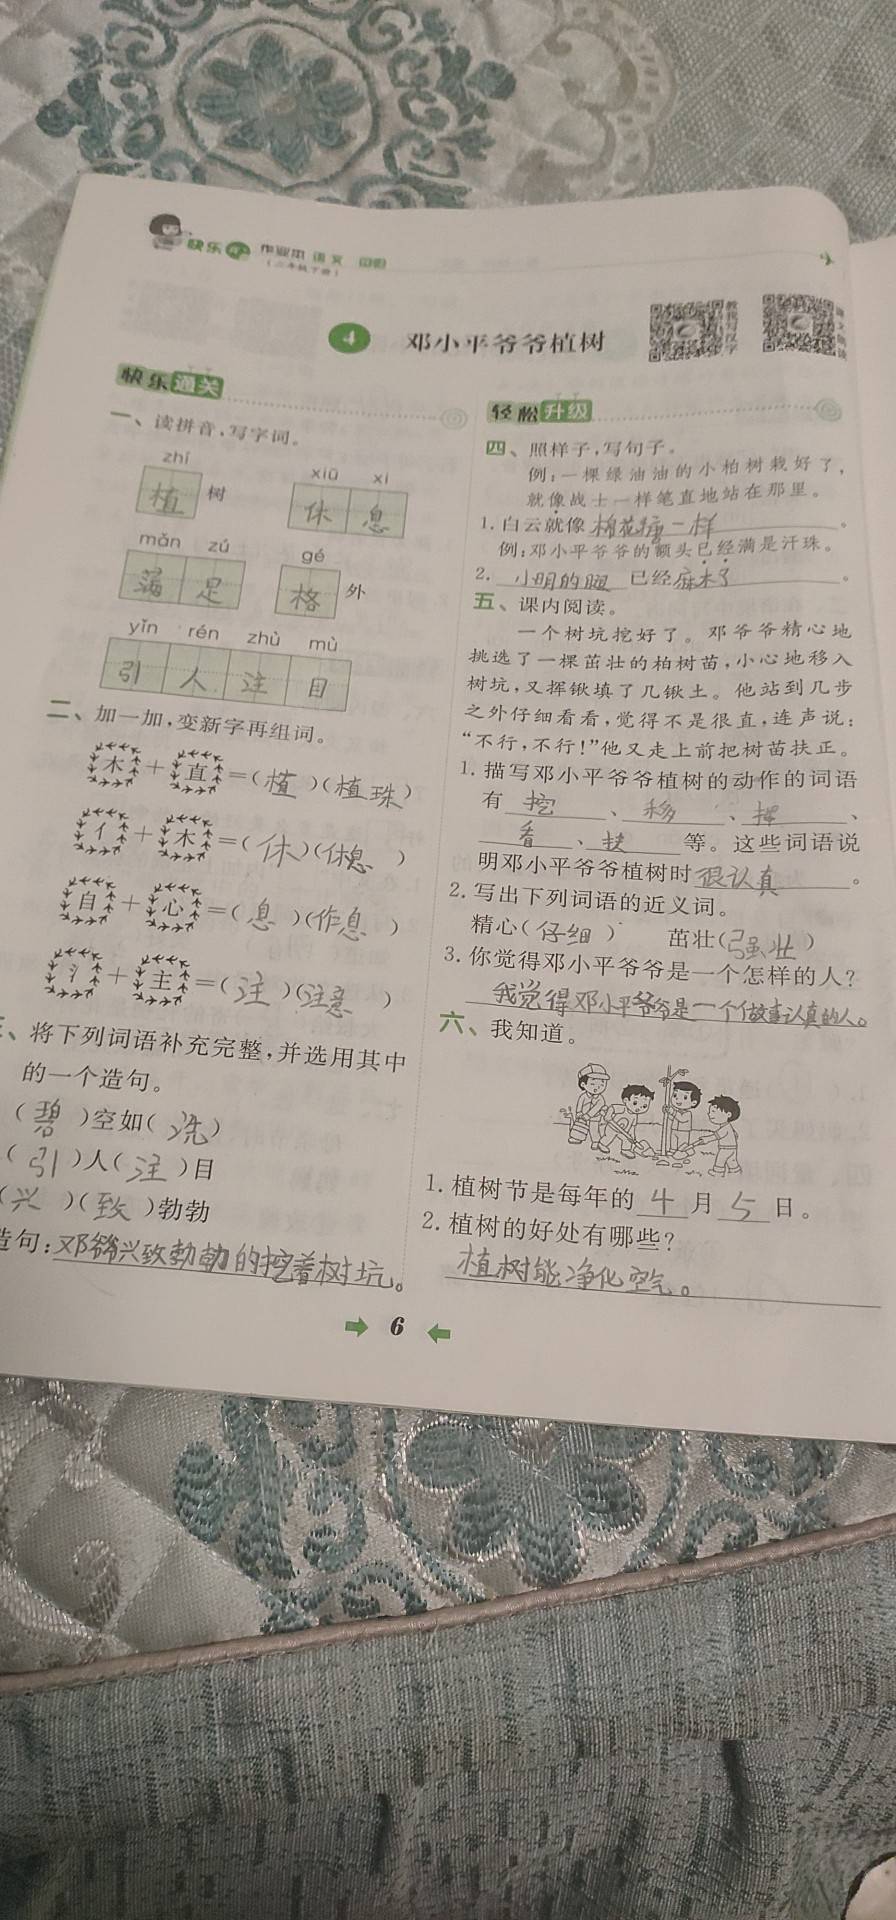 快乐 作业本 语文
(二年级下册)
4 邓小平爷爷植树
快乐通关
一、读拼音,写字词。
zhí xiū xi
植 树 休 息
mǎn zú gé
满 足 格 外
yǐn rén zhù mù
引 人 注 目
二、加一加,变新字再组词。
木+直=(植)(植珠)
亻+木=(休)(休息)
自+心=(息)(作息)
氵+主=(注)(注意)
、将下列词语补充完整,并选用其中
的一个造句。
(碧)空如(洗)
(引)人(注)目
(兴)(致)勃勃
造句:邓爷爷兴致勃勃的挖着树坑。
轻松升级
四、照样子,写句子。
例:一棵绿油油的小柏树栽好了,
就像战士一样笔直地站在那里。
1.白云就像棉花糖一样。
例:邓小平爷爷的额头已经满是汗珠。
2.小明的腿已经麻木了。
五、课内阅读。
一个树坑挖好了。邓爷爷精心地
挑选了一棵茁壮的柏树苗,小心地移入
树坑,又挥锹填了几锹土。他站到几步
之外仔细看看,觉得不是很直,连声说:
“不行,不行!”他又走上前把树苗扶正。
1.描写邓小平爷爷植树的动作的词语
有挖、移、挥、
看、扶等。这些词语说
明邓小平爷爷植树时很认真。
2.写出下列词语的近义词。
精心(仔细) 茁壮(强壮)
3.你觉得邓小平爷爷是一个怎样的人?
我觉得邓小平爷爷是一个做事认真的人。
六、我知道。
1.植树节是每年的4月5日。
2.植树的好处有哪些?
植树能净化空气。
6